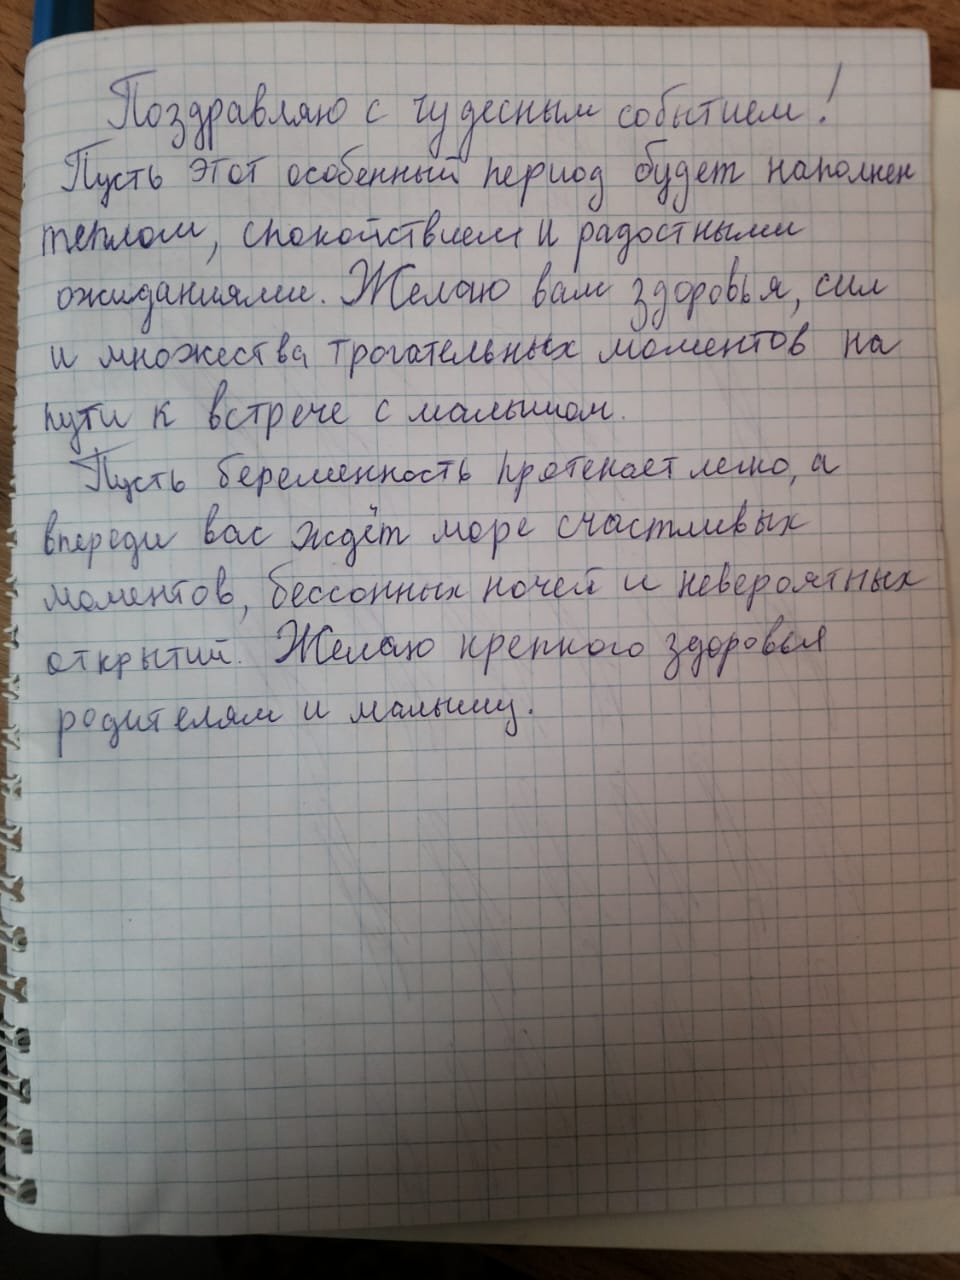 Поздравляю с чудесным событием!
Пусть этот особенный период будет наполнен
теплом, спокойствием и радостными
ожиданиями. Желаю вам здоровья, сил
и множества трогательных моментов на
пути к встрече с малышом.
Пусть беременность протекает легко, а
впереди вас ждёт море счастливых
моментов, бессонных ночей и невероятных
открытий. Желаю крепкого здоровья
родителям и малышу.